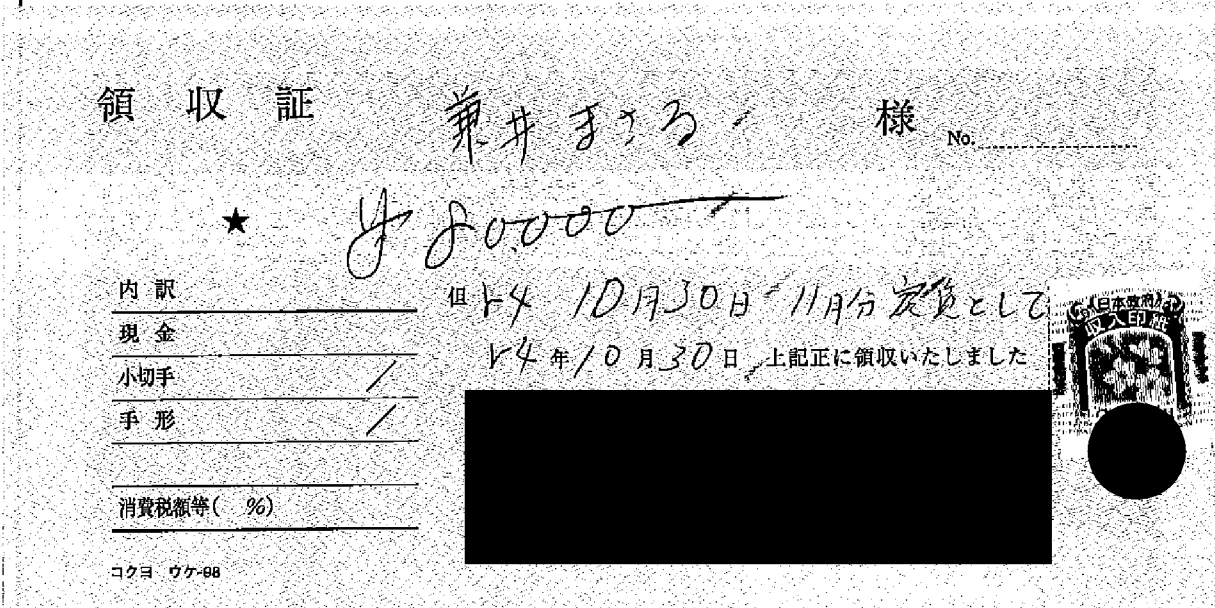 領 収 証 兼井まさる 様 No.
★ ¥80,000
内 訳
現 金
小切手
手 形
消費税額等( %)
コクヨ ウケ-98
但 R4 10月30日 11月分家賃として
R4年10月30日 上記正に領収いたしました
日本政府
収入印紙